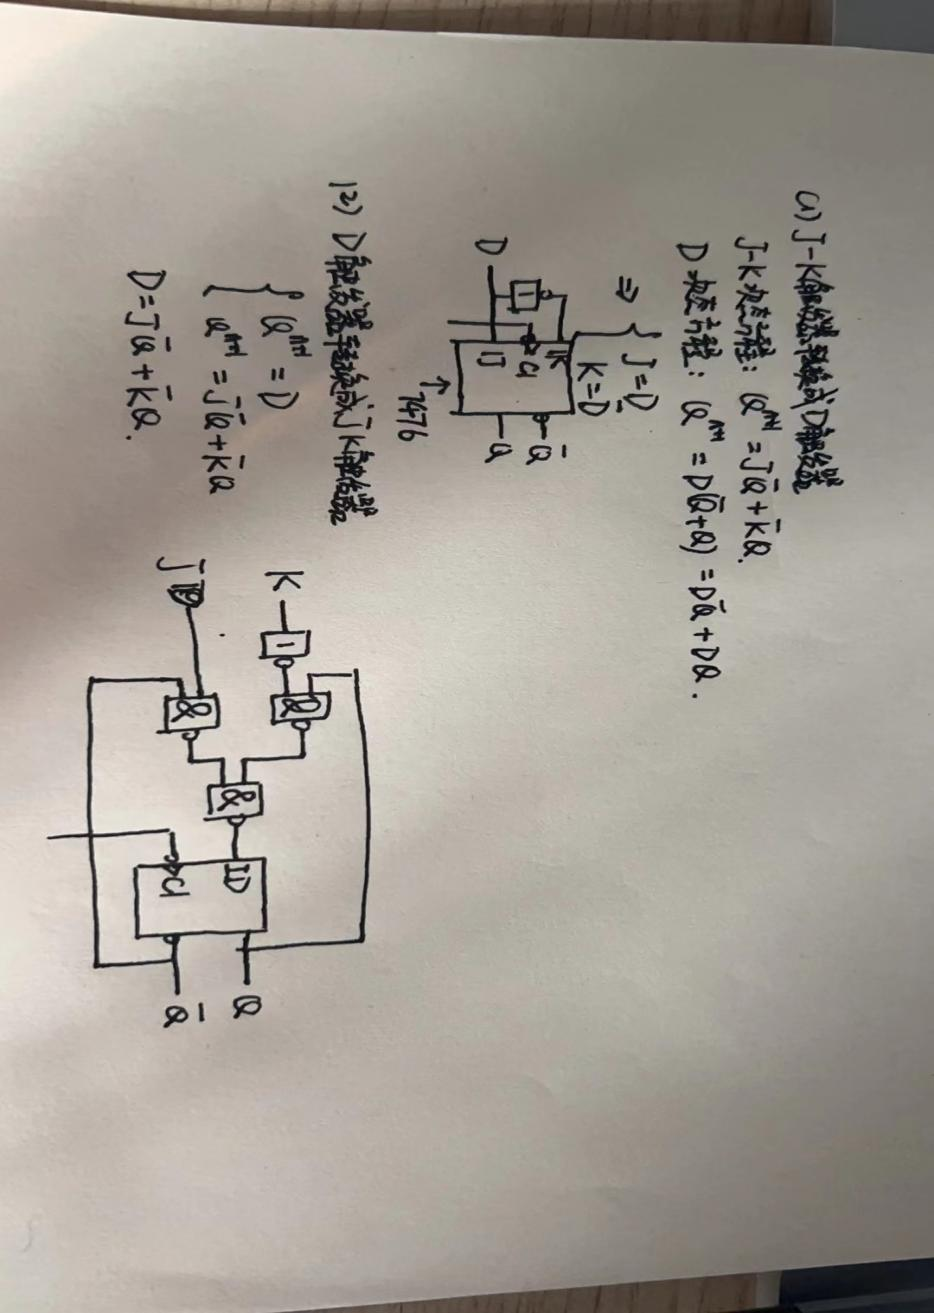 (1) J-K触发器转换成D触发器
J-K状态方程: Qⁿ⁺¹ = JQ̄ + K̄Q.
D状态方程: Qⁿ⁺¹ = D(Q̄+Q) = DQ̄ + DQ.
⇒ { J=D
K=D̄
D 1 1K C1 1J Q̄ Q
↑ 7476
(2) D触发器转换成JK触发器
{ Qⁿ⁺¹ = D
Qⁿ⁺¹ = JQ̄ + K̄Q
D = JQ̄ + K̄Q.
K 1 & & 1D Q
J & C1 Q̄